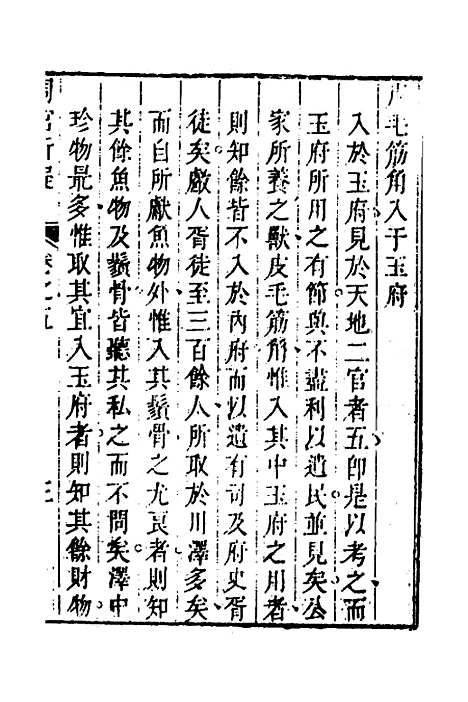 皮毛筋角入于玉府
入於玉府見於天地二官者五即是以考之而
玉府所用之有節與不盡利以遺民並見矣公
家所養之獸皮毛筋角惟入其中玉府之用者
則知餘皆不入於內府而以遺有司及府史胥
徒矣䱷人胥徒至三百餘人所取於川澤多矣
而自所獻魚物外惟入其鬚骨之尤良者則知
其餘魚物及鬚骨皆聽其私之而不問矣澤中
珍物最多惟取其宜入玉府者則知其餘財物
周官析疑
卷之五
三